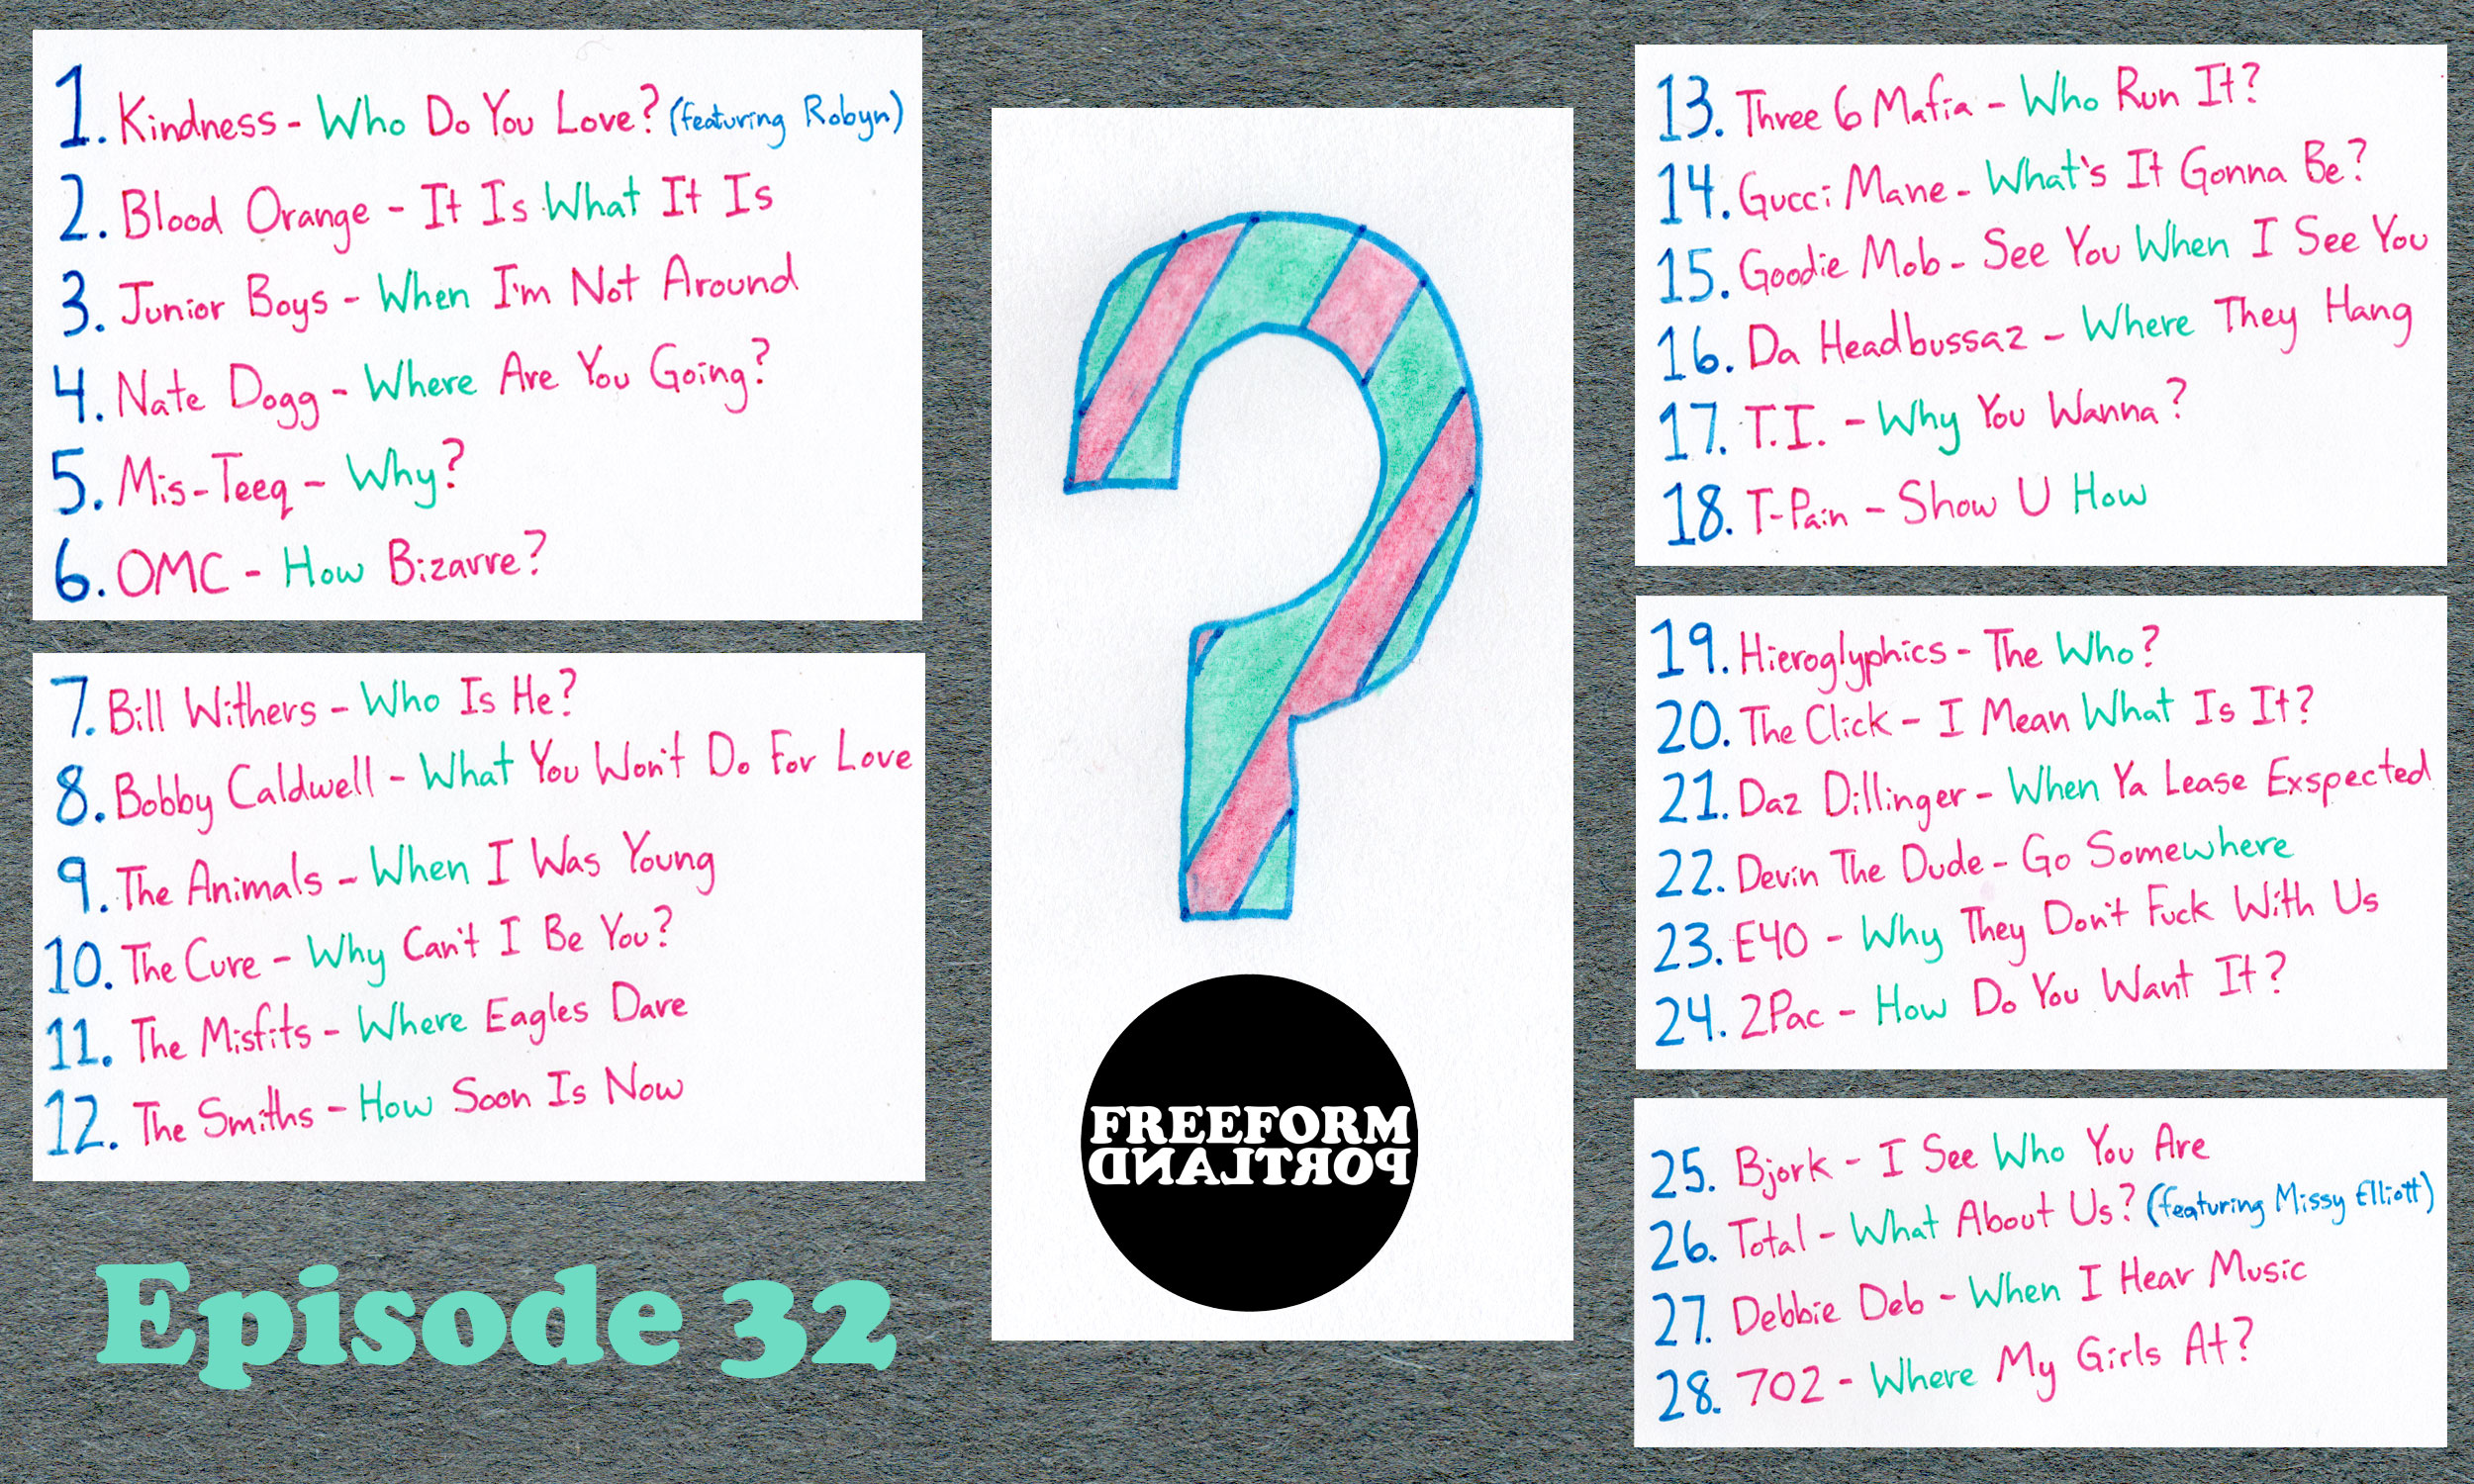 1. Kindness - Who Do You Love? (featuring Robyn)
2. Blood Orange - It Is What It Is
3. Junior Boys - When I'm Not Around
4. Nate Dogg - Where Are You Going?
5. Mis-Teeq - Why?
6. OMC - How Bizarre?
7. Bill Withers - Who Is He?
8. Bobby Caldwell - What You Won't Do For Love
9. The Animals - When I Was Young
10. The Cure - Why Can't I Be You?
11. The Misfits - Where Eagles Dare
12. The Smiths - How Soon Is Now
Episode 32
?
FREEFORM
PORTLAND
13. Three 6 Mafia - Who Run It?
14. Gucci Mane - What's It Gonna Be?
15. Goodie Mob - See You When I See You
16. Da Headbussaz - Where They Hang
17. T.I. - Why You Wanna?
18. T-Pain - Show U How
19. Hieroglyphics - The Who?
20. The Click - I Mean What Is It?
21. Daz Dillinger - When Ya Lease Exspected
22. Devin The Dude - Go Somewhere
23. E40 - Why They Don't Fuck With Us
24. 2Pac - How Do You Want It?
25. Bjork - I See Who You Are
26. Total - What About Us? (featuring Missy Elliott)
27. Debbie Deb - When I Hear Music
28. 702 - Where My Girls At?